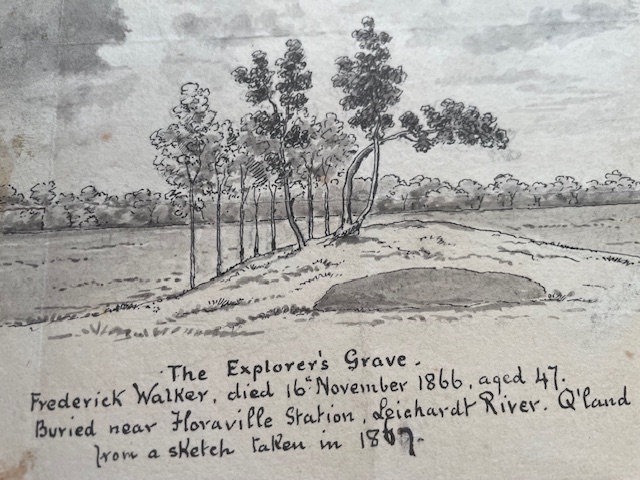 The Explorer's Grave.
Frederick Walker, died 16th November 1866, aged 47.
Buried near Floraville Station, Leichardt River. Q'land
from a sketch taken in